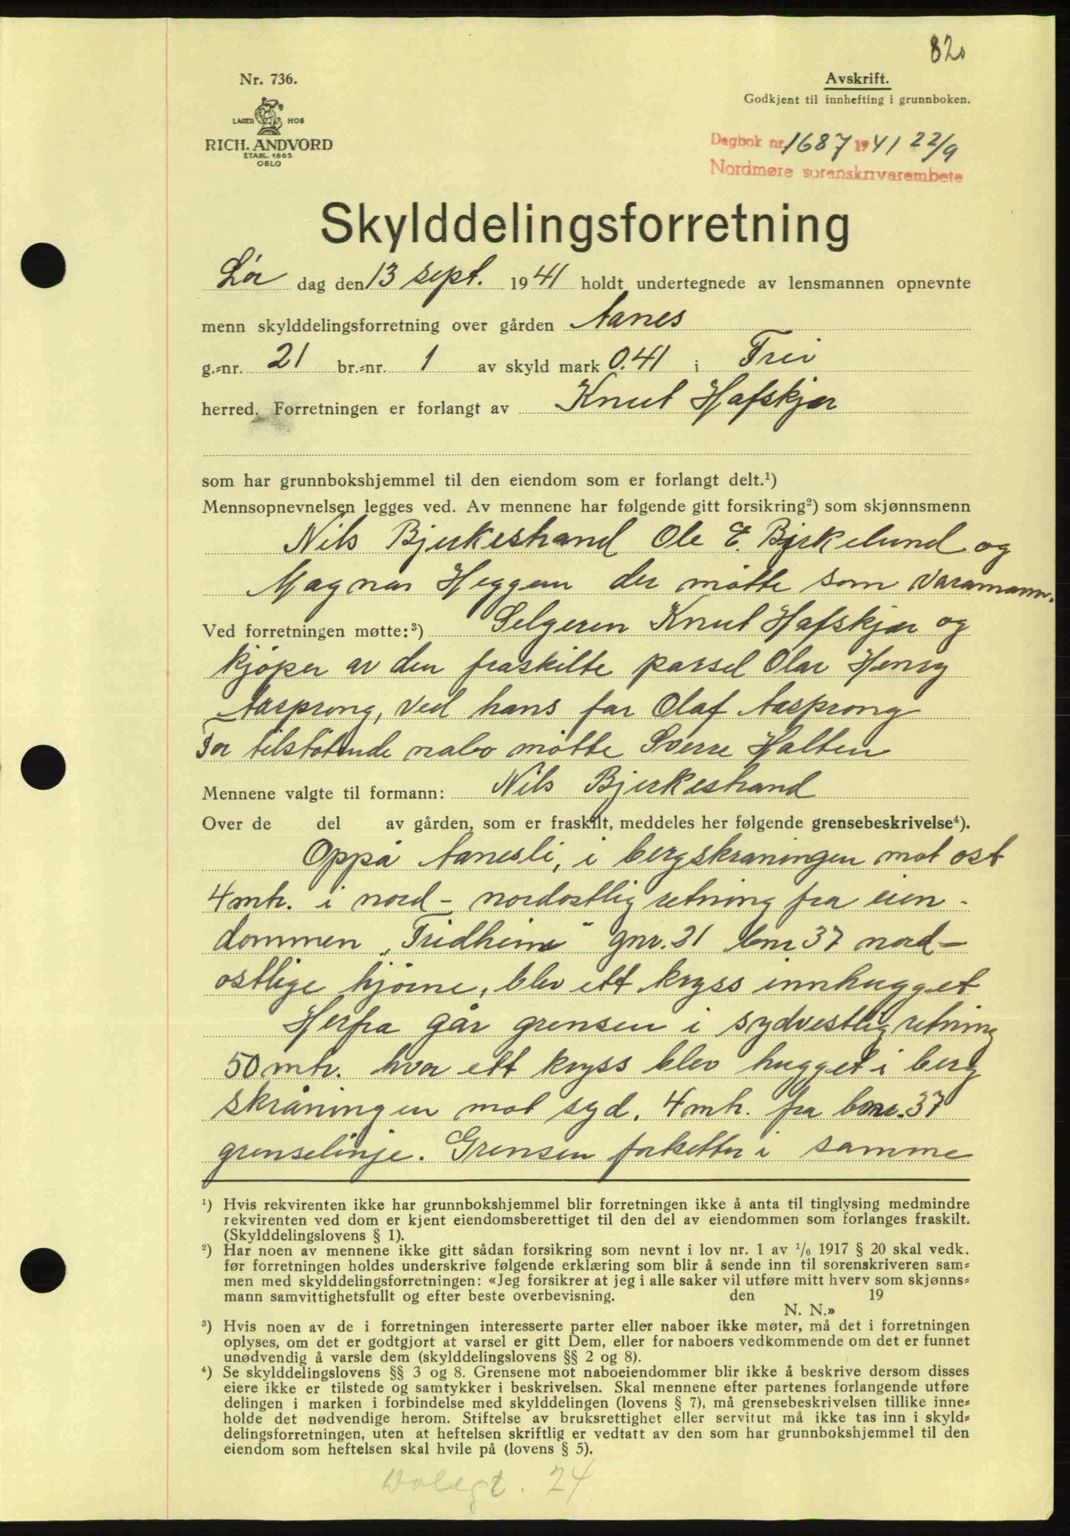 82.
Nr. 736.
LAGER HOS
RICH. ANDVORD
ETABL. 1865
OSLO
Avskrift.
Godkjent til innhefting i grunnboken.
Dagbok nr. 1687 1941 22/9
Nordmøre sorenskriverembete
Skylddelingsforretning
Lør dag den 13 sept. 1941 holdt undertegnede av lensmannen opnevnte
menn skylddelingsforretning over gården Aanes
g.-nr. 21 br.-nr. 1 av skyld mark 0.41 i Frei
herred. Forretningen er forlangt av Knut Hafskjær
som har grunnbokshjemmel til den eiendom som er forlangt delt.¹)
Mennsopnevnelsen legges ved. Av mennene har følgende gitt forsikring²) som skjønnsmenn
Nils Bjerkestrand Ole E. Bjrkelund og
Magnar Heggem der møtte som varamann.
Ved forretningen møtte:³) Selgeren Knut Hafskjær og
kjøper av den fraskilte parsel Olav Henry
Aasprong, ved hans far Olaf Aasprong
For tilstøtende nabo møtte Sverre Halten
Mennene valgte til formann: Nils Bjerkestrand
Over de del av gården, som er fraskilt, meddeles her følgende grensebeskrivelse⁴).
Oppå Aanesli, i bergskraningen mot ost
4 mtr. i nord - nordostlig retning fra eien-
dommen „Fridheim" gnr. 21 bnr 37 nord-
ostlige hjørne, blev ett kryss innhugget
Herfra går grensen i sydvestlig retning
50 mtr. hvor ett kryss blev hugget i berg
skråningen mot syd. 4 mtr. fra bnr. 37
grenselinje. Grensen fortsetter i samme
¹) Hvis rekvirenten ikke har grunnbokshjemmel blir forretningen ikke å anta til tinglysing medmindre
rekvirenten ved dom er kjent eiendomsberettiget til den del av eiendommen som forlanges fraskilt.
(Skylddelingslovens § 1).
²) Har noen av mennene ikke gitt sådan forsikring som nevnt i lov nr. 1 av ¹/₆ 1917 § 20 skal vedk.
før forretningen holdes underskrive følgende erklæring som blir å sende inn til sorenskriveren sam-
men med skylddelingsforretningen: «Jeg forsikrer at jeg i alle saker vil utføre mitt hverv som skjønns-
mann samvittighetsfullt og efter beste overbevisning. den 19
N. N.»
³) Hvis noen av de i forretningen interesserte parter eller naboer ikke møter, må det i forretningen
oplyses, om det er godtgjort at varsel er gitt Dem, eller for naboers vedkommende om det er funnet
unødvendig å varsle dem (skylddelingslovens §§ 2 og 8).
⁴) Se skylddelingslovens §§ 3 og 8. Grensene mot naboeiendommer blir ikke å beskrive dersom disses
eiere ikke er tilstede og samtykker i beskrivelsen. Skal mennene efter partenes forlangende utføre
delingen i marken i forbindelse med skylddelingen (lovens § 7), må grensebeskrivelsen tillike inne-
holde det nødvendige herom. Stiftelse av bruksrettighet eller servitut må ikke tas inn i skyld-
delingsforretningen, uten at heftelsen skriftlig er vedtatt av den som har grunnbokshjemmel til den
eiendom som heftelsen skal hvile på (lovens § 5).
24